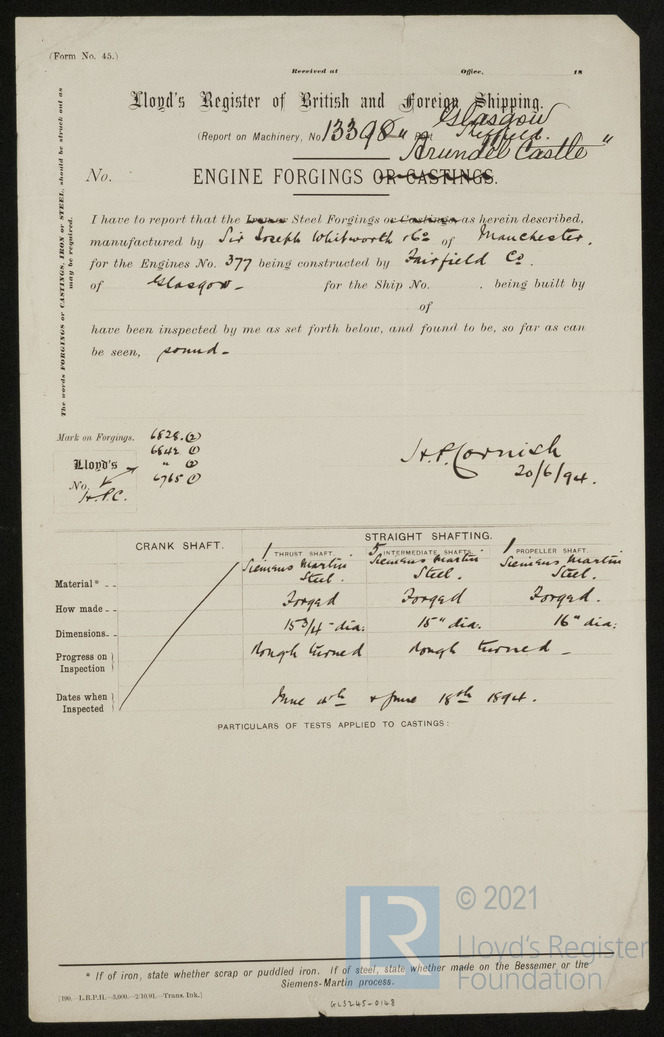 (Form No. 45.)
Received at Office, 18
Lloyd's Register of British and Foreign Shipping.
Glasgow
(Report on Machinery, No. 13398 Port Sheffield.
"Arundel Castle"
No. ENGINE FORGINGS OR CASTINGS.
The words FORGINGS or CASTINGS, IRON or STEEL, should be struck out as may be required.
I have to report that the Iron or Steel Forgings or Castings as herein described,
manufactured by Sir Joseph Whitworth & Co of Manchester.
for the Engines No. 377 being constructed by Fairfield Co.
of Glasgow - for the Ship No. . being built by
of
have been inspected by me as set forth below, and found to be, so far as can
be seen, sound -
Mark on Forgings. 6828. (2)
6842 (1)
Lloyd's " (2)
No. 6765 (1)
H.P.C.
H.P. Cornish
20/6/94.
CRANK SHAFT. STRAIGHT SHAFTING.
1 THRUST SHAFT. 5 INTERMEDIATE SHAFTS. 1 PROPELLER SHAFT.
Material* Siemens Martin Steel. Siemens Martin Steel. Siemens Martin Steel.
How made Forged Forged Forged.
Dimensions 15 3/4" dia: 15" dia: 16" dia:
Progress on Inspection Rough turned Rough turned -
Dates when Inspected June 4th & June 18th 1894.
PARTICULARS OF TESTS APPLIED TO CASTINGS:
* If of iron, state whether scrap or puddled iron. If of steel, state whether made on the Bessemer or the
Siemens-Martin process.
[190.—L.R.P.H.—3,000.—2/10/91.—Trans. Ink.]
GLS245-0148
LR
© 2021
Lloyd's Register
Foundation